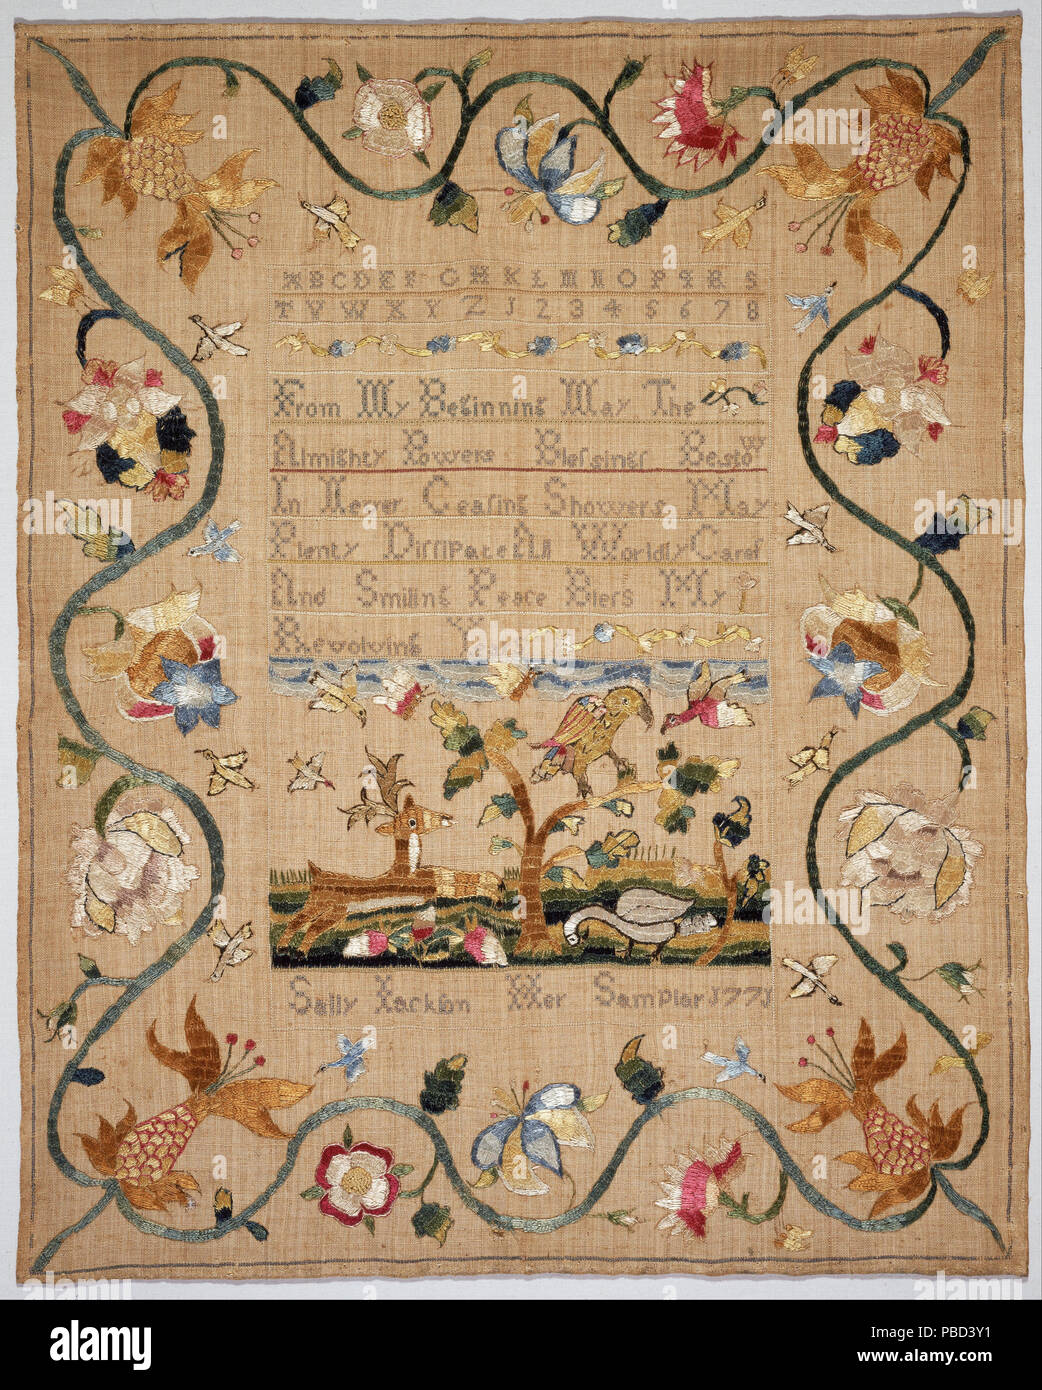 ABCDEF GHKLMNOPQRS
TVWXYZJ2345678
From My Beginning May The
Almighty Powers Blessings Bestow
In Never Ceaſing Showers May
Plenty Diſſipate All Worldly Careſ
And Smiling Peace Bless My
Revolving
Sally Jackſon Her Sampler 1771
alamy
Image ID: PBD3Y1
www.alamy.com